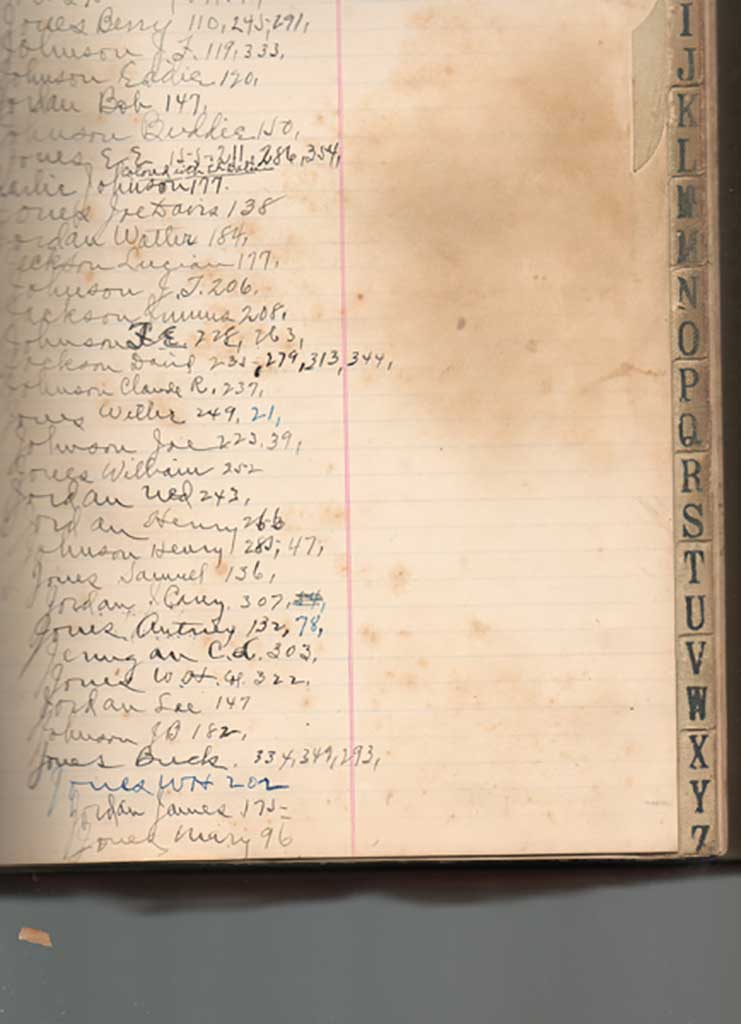 Jones Berry 110, 245, 291,
Johnson J. F. 119, 333,
Johnson Eddie 120,
Jordan Bob 147,
Johnson Buddie 150,
Jones E. E. 155, 211, 286, 354,
Johnson 177.
Jones Joe Davis 138
Jordan Walter 184,
Jackson 177,
Johnson J. T. 206,
Jackson 208,
Johnson J. E. 228, 263,
Jackson David 235, 279, 313, 344,
Johnson Claude R. 237,
Jones Willie 249, 21,
Johnson Joe 223, 39,
Jones William 252
Jordan Ned 243,
Jordan Henry 266
Johnson Henry 285, 47,
Jones Samuel 136,
Jordan, J. Carey. 307,
Jones, Autney 132, 78,
Jernigan C. L. 303,
Jones W. H. 322,
Jordan Lee 147
Johnson JB 182,
Jones Buck. 334, 349, 293,
Jones WH 202
Jordan James 175
Jones Mary 96
I
J
K
L
M
N
O
P
Q
R
S
T
U
V
W
X
Y
Z